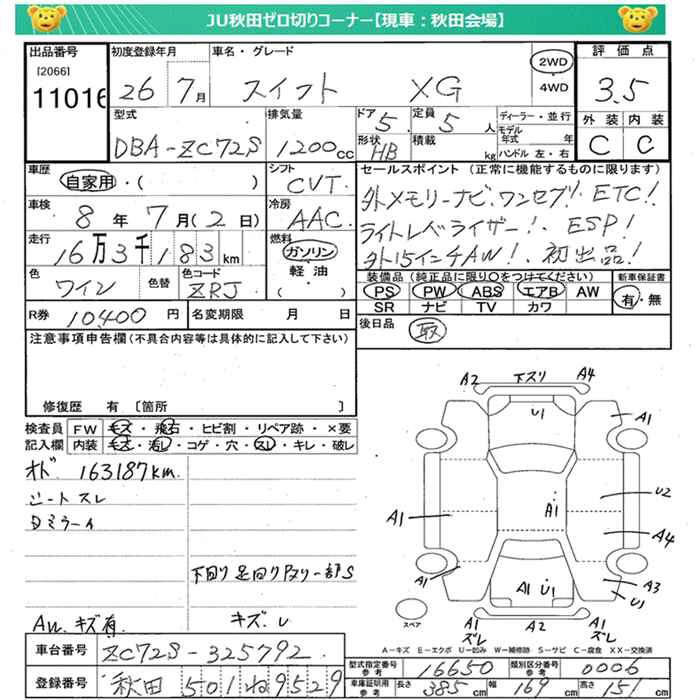 JU秋田ゼロ切りコーナー【現車：秋田会場】
出品番号
[2066]
11016
初度登録年月
26 年 7月
車名・グレード
スイフト XG
2WD
・
4WD
評価点
3.5
外装 内装
C C
型式
DBA-ZC72S
排気量
1200cc
ドア
5
形状
HB
定員
5人
積載
kg
ディーラー・並行
モデル年式 年
ハンドル 左・右
車歴
自家用・( )
シフト
CVT
車検
8年 7月(2日)
冷房
AAC
走行
16万3千183km
燃料
ガソリン
軽油
( )
色
ワイン
色替
色コード
ZRJ
R券 10400円
名変期限 月 日
セールスポイント (正常に機能するものに限ります)
外メモリーナビ、ワンセグ! ETC!
ライトレベライザー! ESP!
外15インチAW! 初出品!
装備品 (純正品に限り○をつけてください)
PS PW ABS エアB AW
SR ナビ TV カワ
新車保証書
有・無
後日品
取
注意事項申告欄 (不具合内容等は具体的に記入して下さい)
修復歴 有 〔箇所 〕
検査員記入欄
FW キズ・飛石・ヒビ割・リペア跡・×要
内装 キズ・汚レ・コゲ・穴・スレ・キレ・破レ
オド 163187km.
シートスレ
下回り足回りサビ 一部S
AW、キズ有
キズ
A2 下スリ A4
U1
A1
U2
A1
A1
A4
A1
A1 U1
A3
U1
A1
ズレ
A2
A1
ズレ
スペア
A－キズ E－エクボ U－凹み W－補修跡 S－サビ C－腐食 XX－交換済
車台番号 ZC72S-325792
登録番号 秋田 501 ね 9529
型式指定番号 参考 16650
類別区分番号 参考 0006
車庫証明用 参考 長さ 385cm 幅 169cm 高さ 151cm